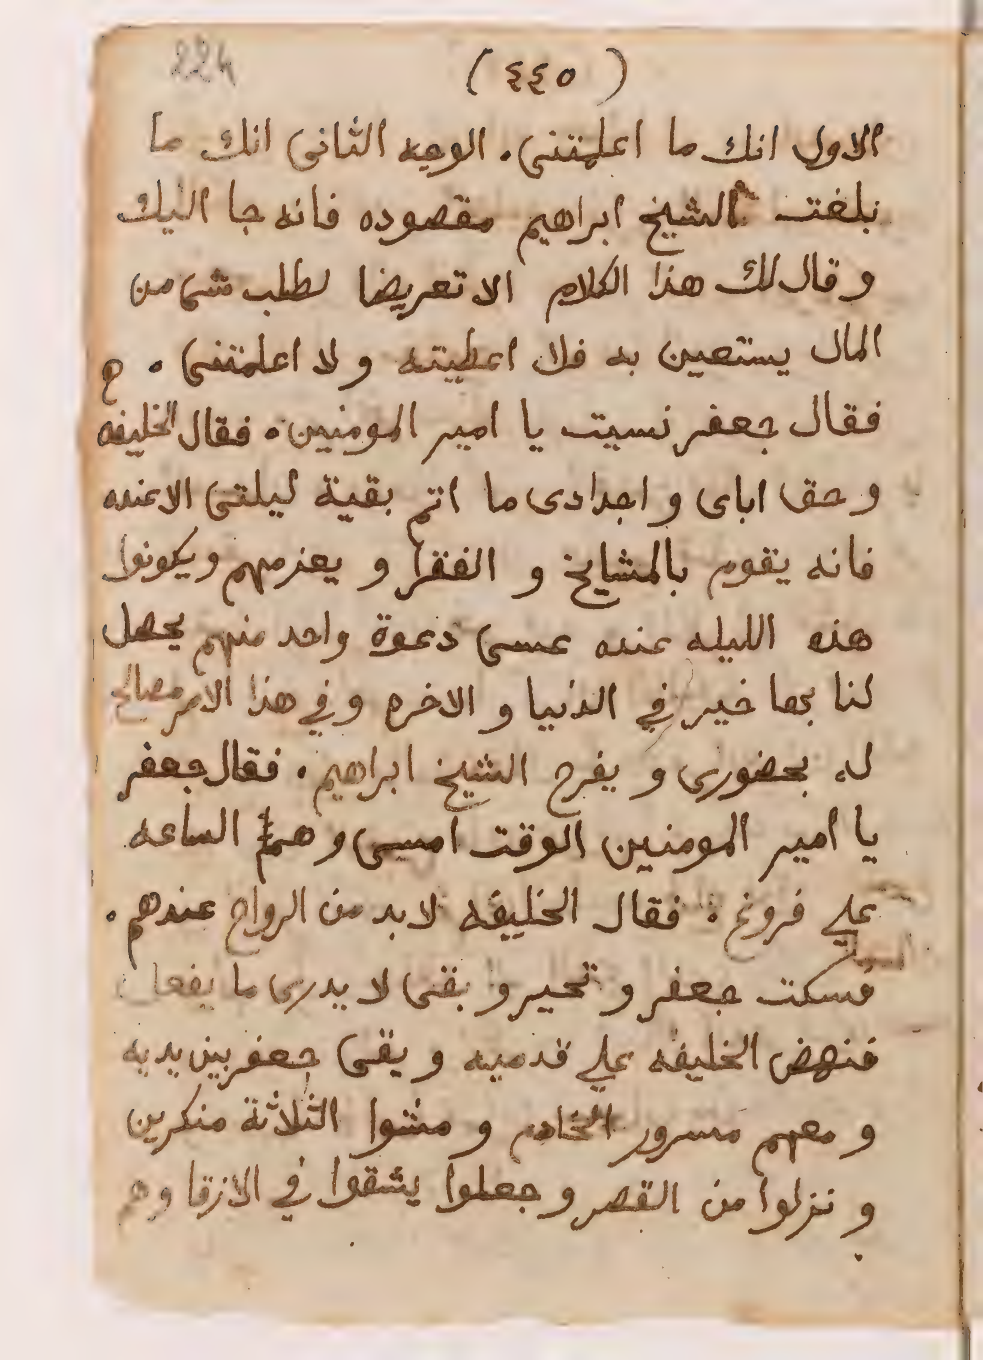 224
(٤٤٥)
الاول انك ما اعلمتنى. الوجه الثانى انك ما
بلغت الشيخ ابراهيم مقصوده فانه جا اليك
و قال لك هذا الكلام الا تعريضا لطلب شى من
المال يستعين به فلا اعطيته و لا اعلمتنى.
فقال جعفر نسيت يا امير المومنين. فقال الخليفه
و حق اباى و اجدادى ما اتم بقية ليلتى الا عنده
فانه يقوم بالمشايخ و الفقرا و يعزمهم ويكونوا
هذه الليله عنده عسى دعوة واحد منهم يحصل
لنا بها خير في الدنيا و الاخره وفي هذا الامر مصالح
له بحضورى و يفرح الشيخ ابراهيم. فقال جعفر
يا امير المومنين الوقت امسى و هم الساعه
علي فروغ. فقال الخليفه لا بد من الرواح عندهم.
فسكت جعفر و تحير و بقى لا يدرى ما يفعل
فنهض الخليفه علي قدميه و بقى جعفر بين يديه
و معهم مسرور الخادم و مشوا الثلاثة منكرين
و نزلوا من القصر و جعلوا يشقوا في الازقا وهم